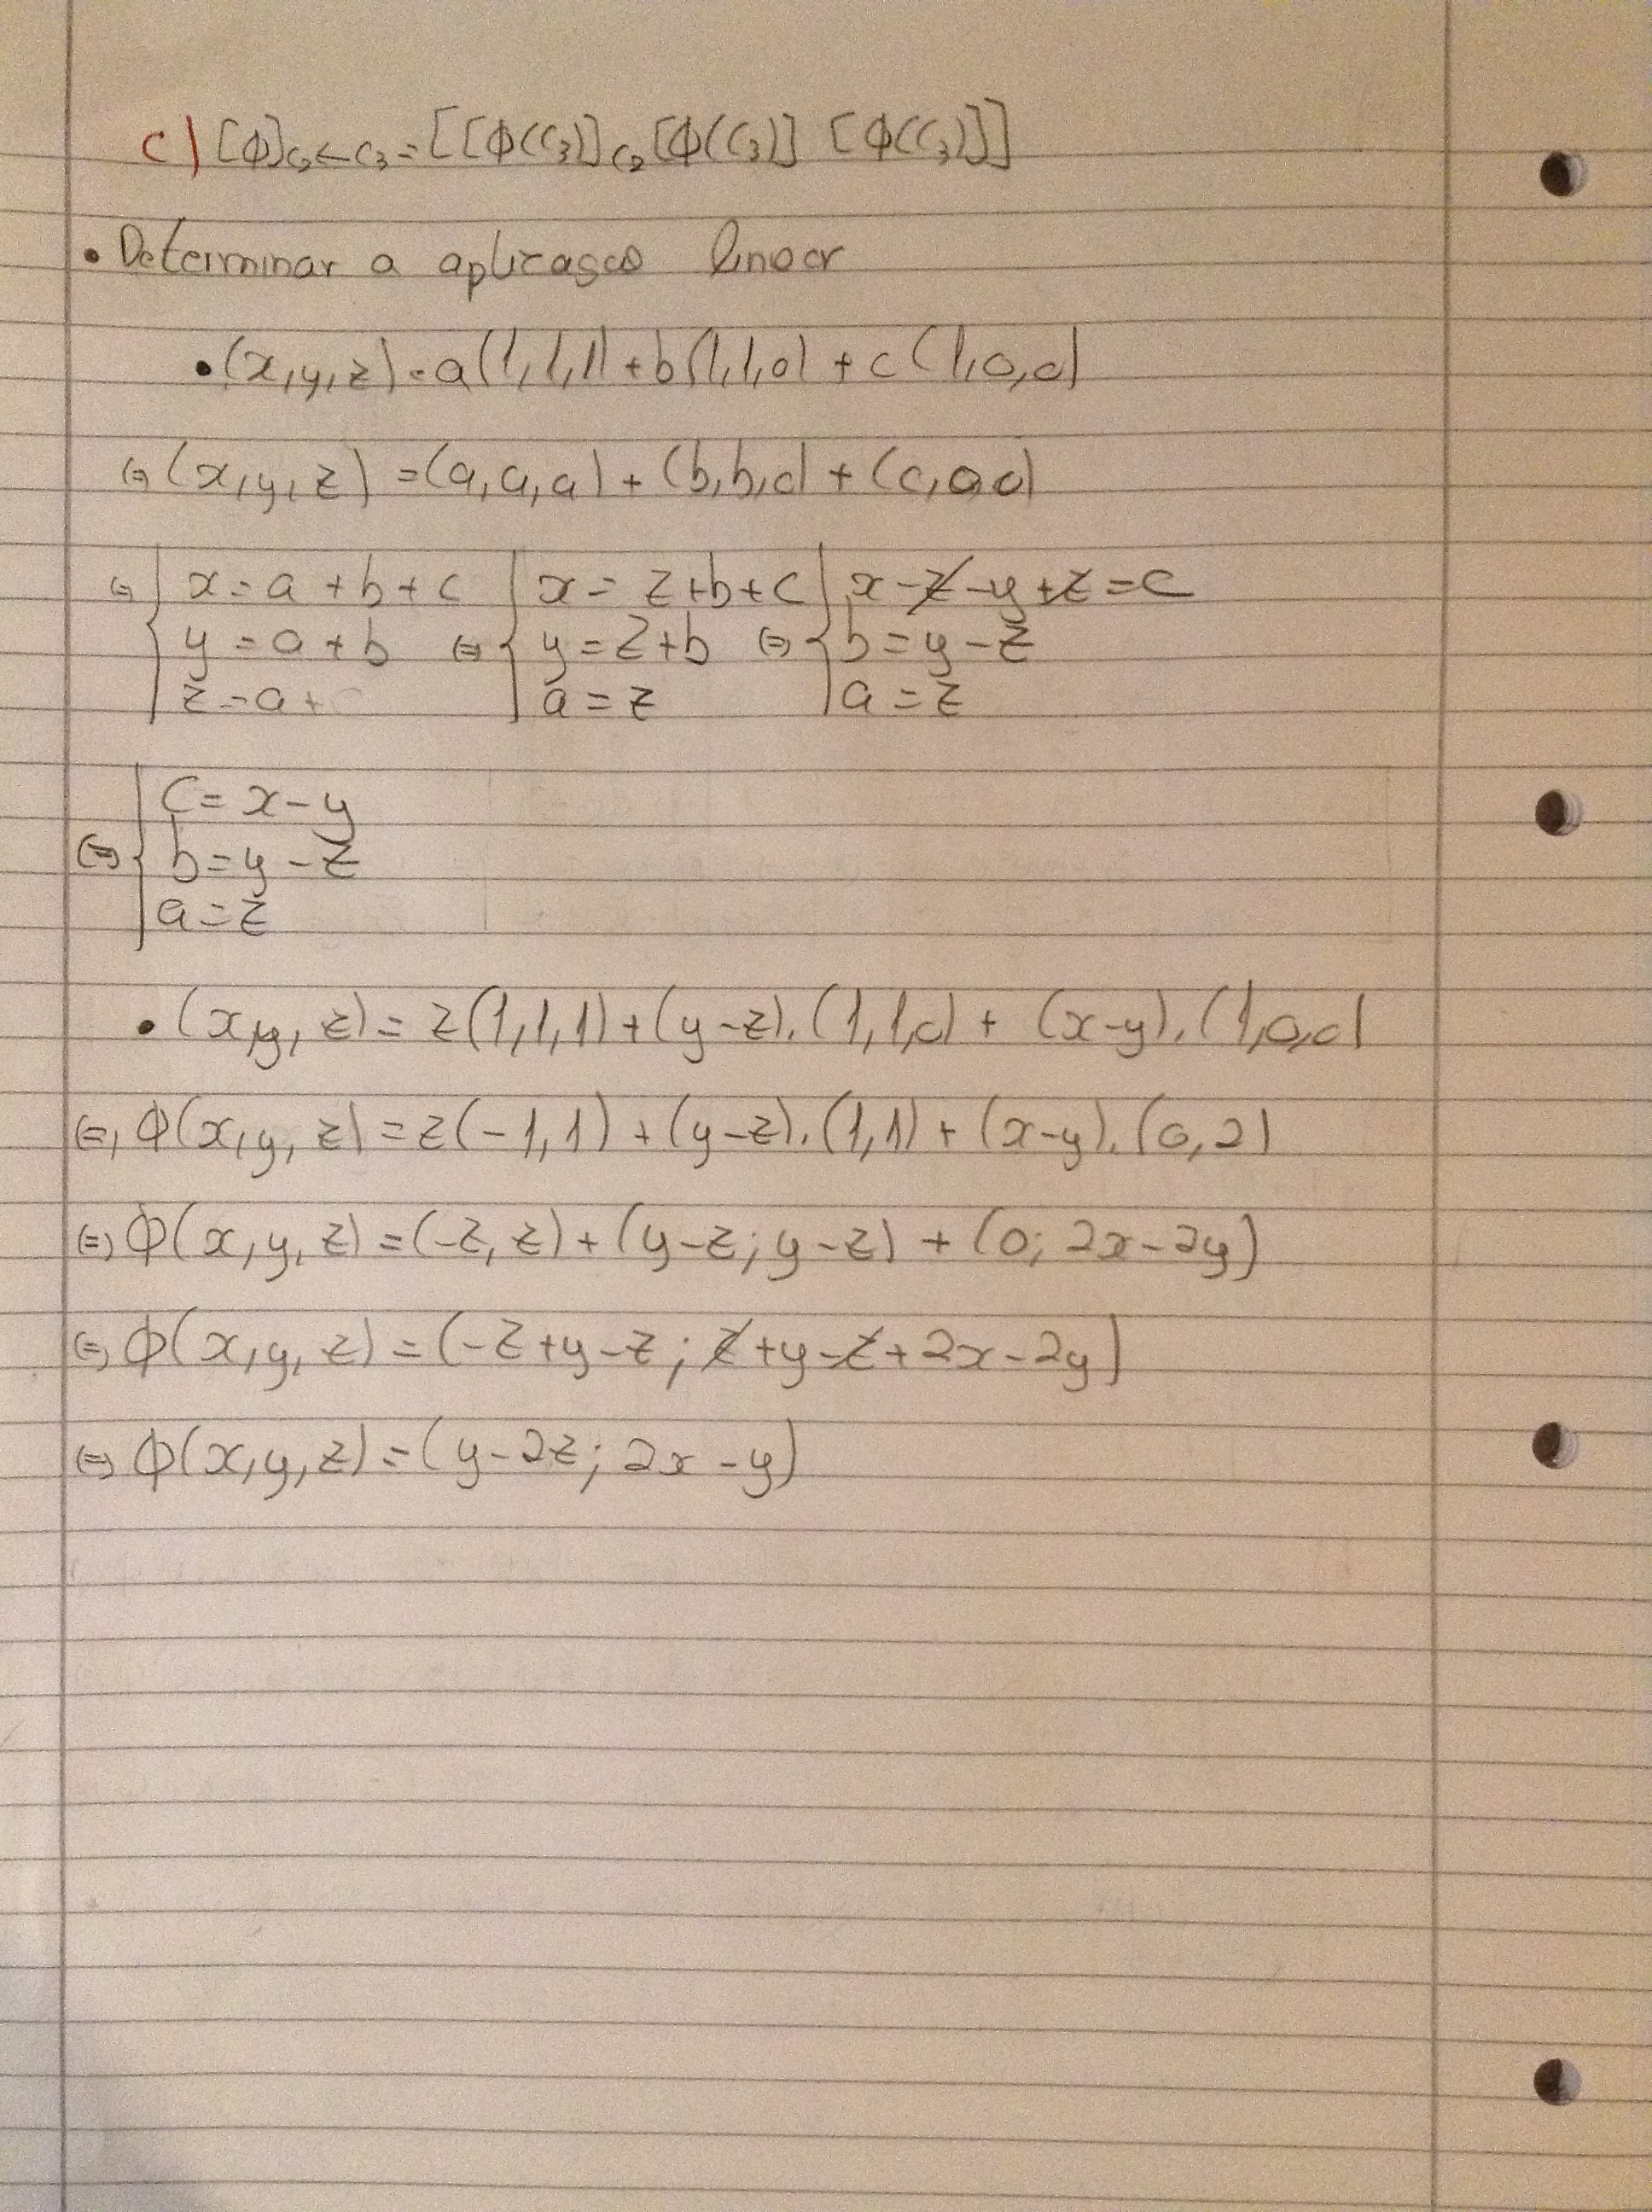 c) [Φ]C₂←C₃ = [[Φ(C₃)]C₂ [Φ(C₃)] [Φ(C₃)]]
• Determinar a aplicasao linear
• (x,y,z) = a(1,1,1) + b(1,1,0) + c(1,0,0)
⇔ (x,y,z) = (a,a,a) + (b,b,0) + (c,0,0)
⇔ { x = a + b + c { x = z+b+c { x-z-y+z = c
y = a + b ⇔ y = z+b ⇔ b = y-z
z = a + a = z a = z
c = x-y
⇔ { b = y-z
a = z
• (x,y,z) = z(1,1,1) + (y-z).(1,1,0) + (x-y).(1,0,0)
⇔ Φ(x,y,z) = z(-1,1) + (y-z).(1,1) + (x-y).(0,2)
⇔ Φ(x,y,z) = (-z,z) + (y-z; y-z) + (0; 2x-2y)
⇔ Φ(x,y,z) = (-z+y-z; z+y-z+2x-2y)
⇔ Φ(x,y,z) = (y-2z; 2x-y)